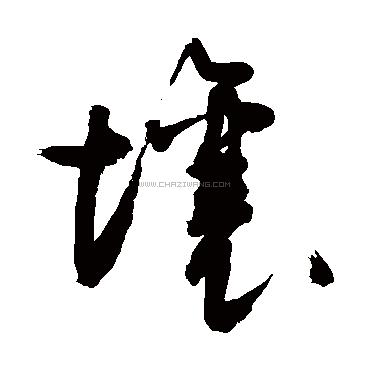 壇
WWW.CHAZIWANG.COM